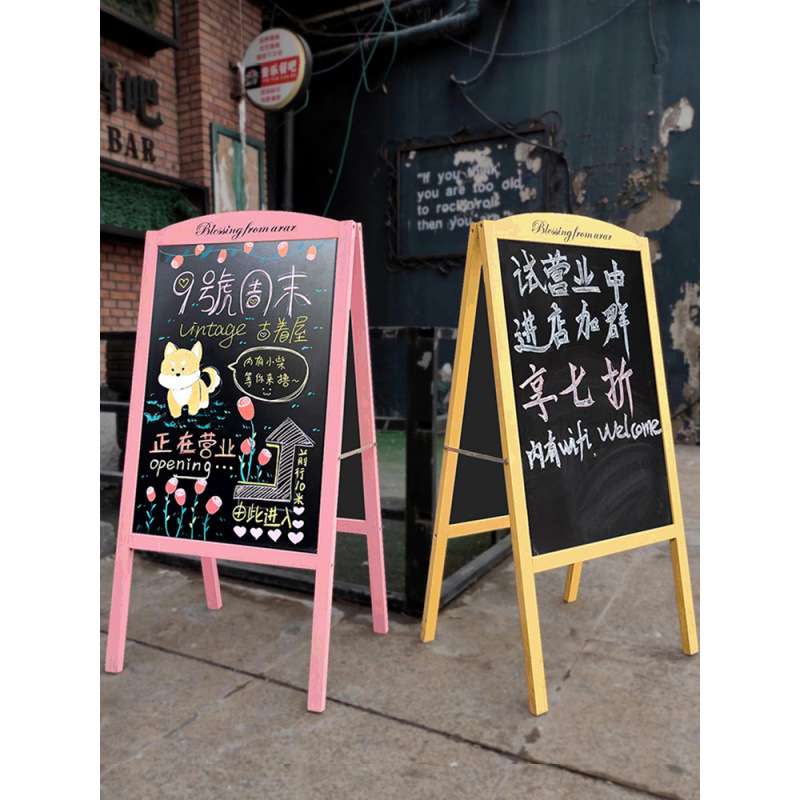 吧
BAR
音乐餐吧
"If you think
you are too old
to rock n roll
then you are"
Blessing from arar
9號周末
Vintage 古着屋
内有小柴
等你来撸~
正在营业
opening...
前行10米
由此进入
Blessing from arar
试营业中
进店加群
享七折
内有wifi. Welcome